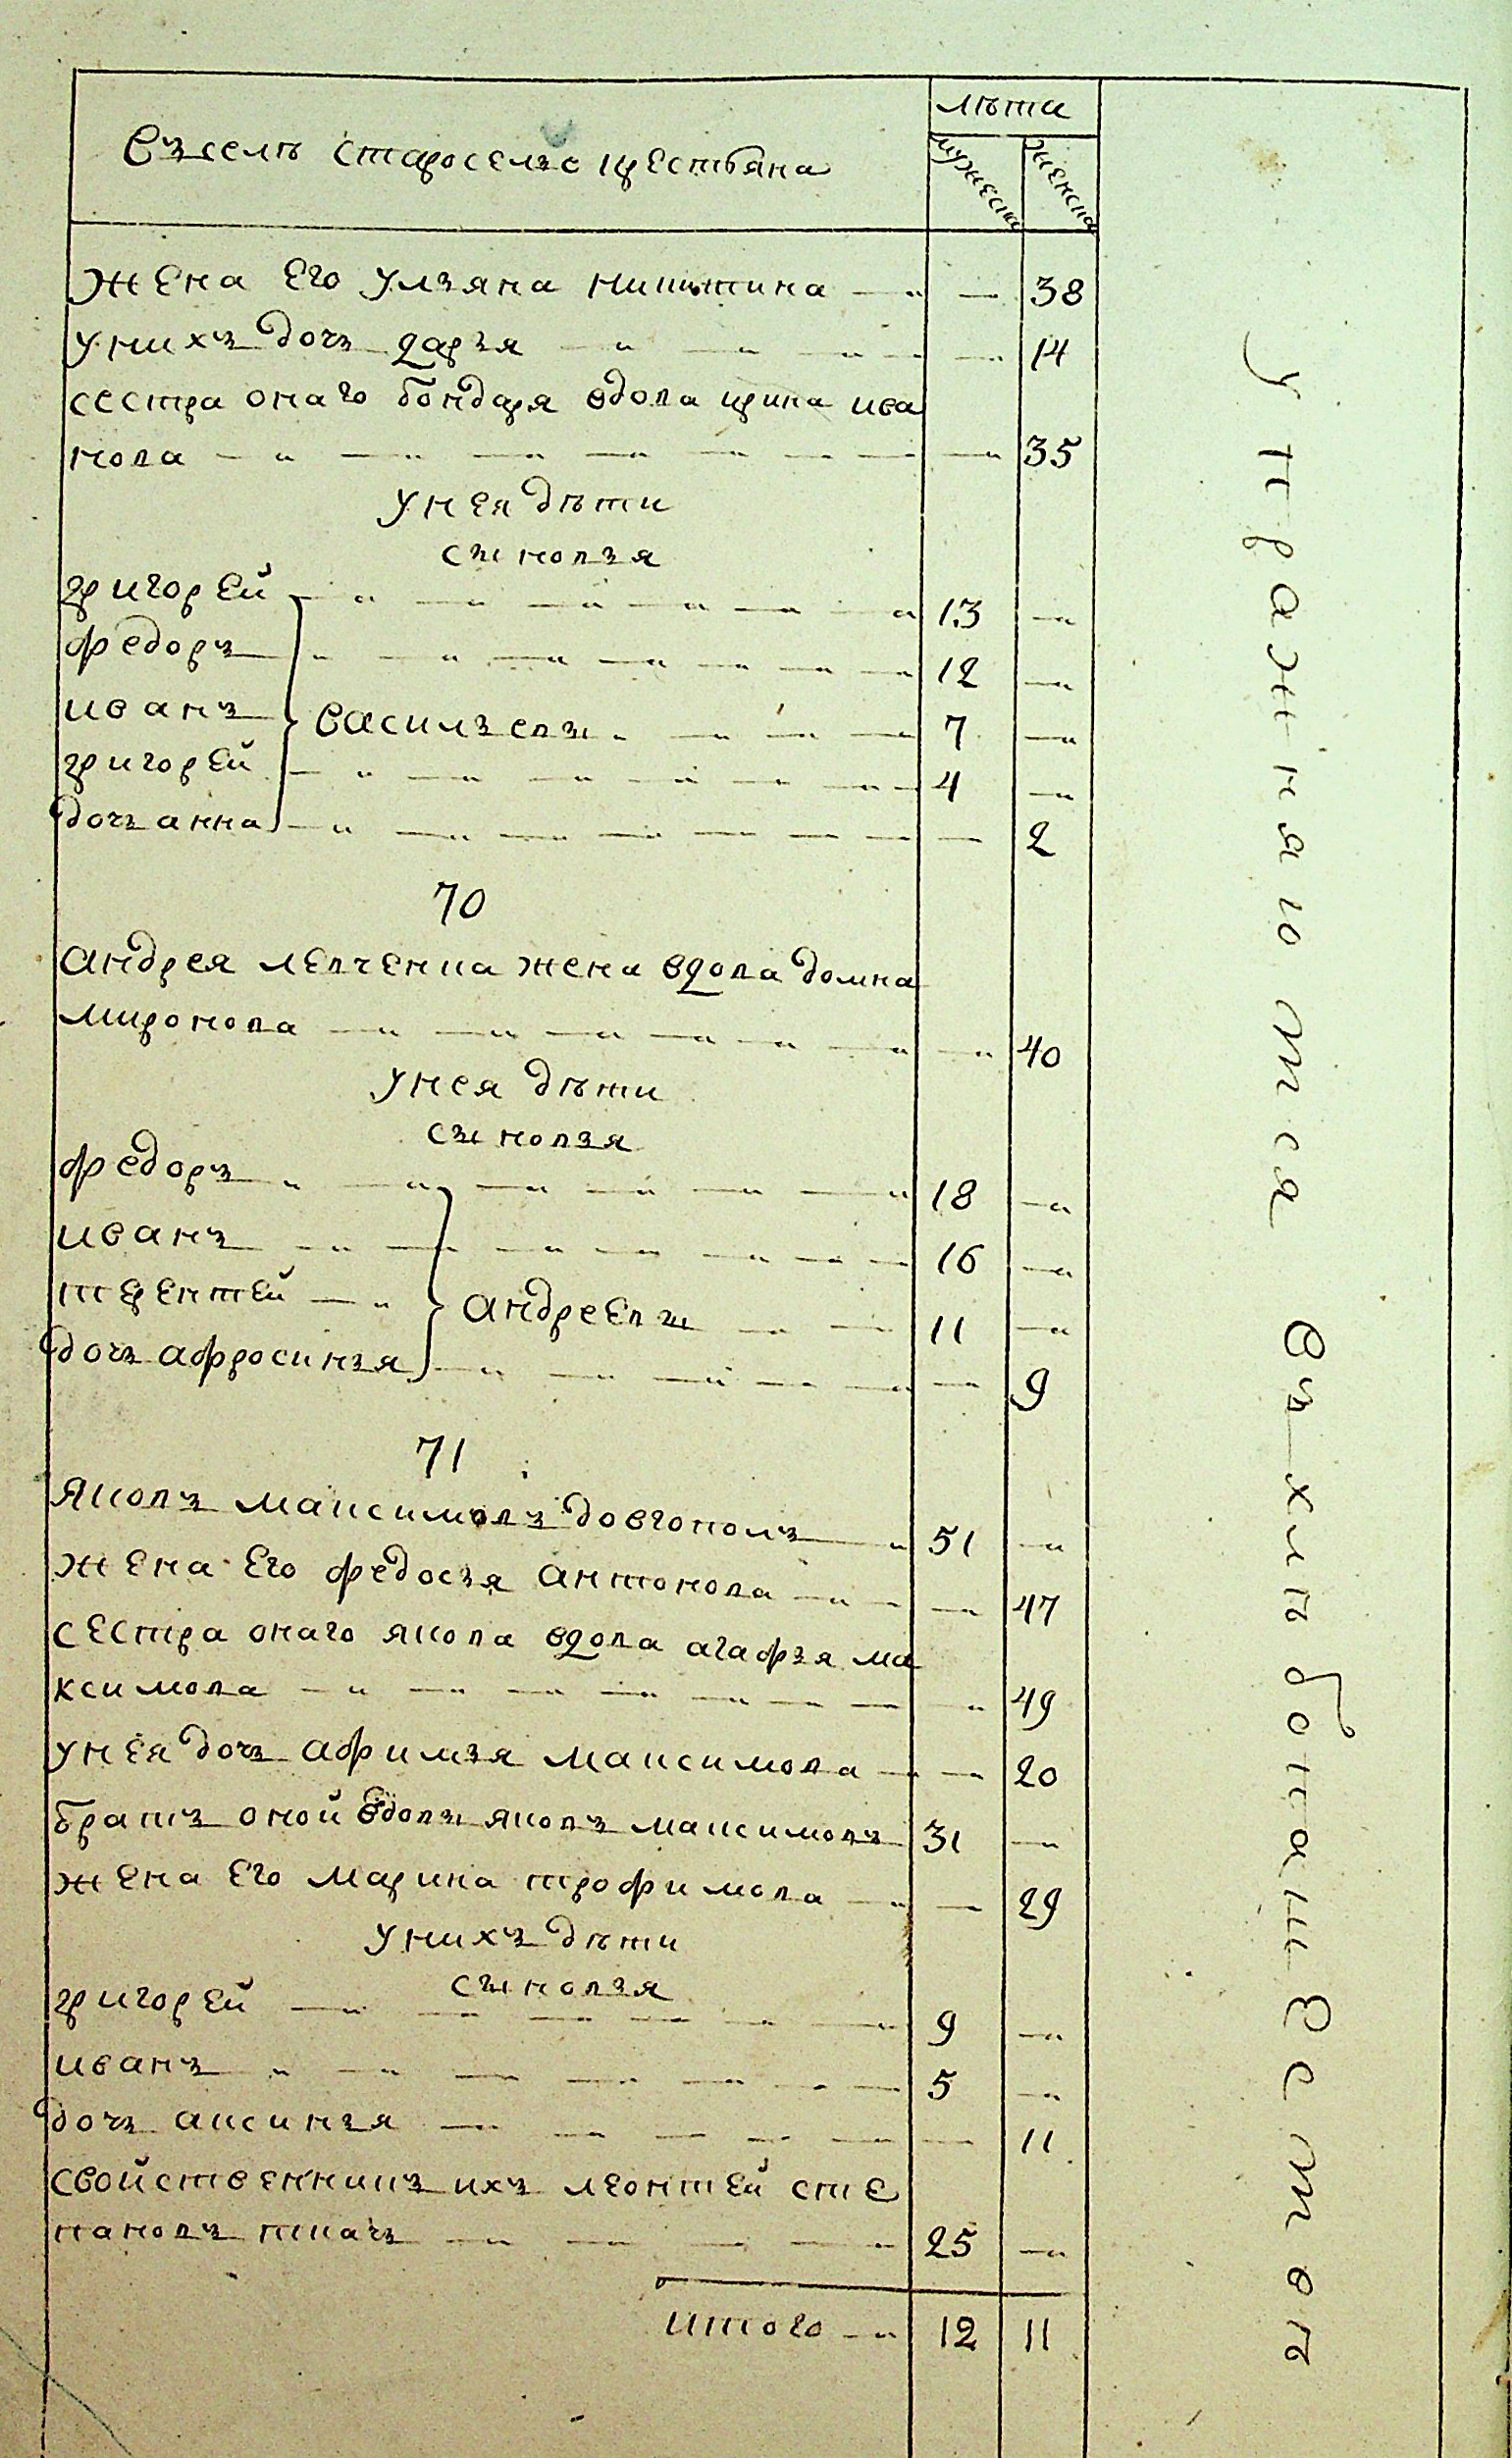 Въ селѣ Староселье крестьяна
лѣта
мужеска
женска
жена его ульяна никитина 38
у нихъ дочь дарья 14
сестра онаго бондаря вдова ирина ива
нова 35
у нея дѣти
сыновья
григорей 13
федоръ 12
иванъ васильевы 7
григорей 4
дочь анна 2
70
андрея левченка жена вдова домна
миронова 40
у нея дѣти
сыновья
федоръ 18
иванъ 16
терентей андреевы 11
дочь афросинья 9
71
яковъ максимовъ довгополъ 51
жена его федосья антонова 47
сестра онаго якова вдова агафья ма
ксимова 49
у нея дочь афимья максимова 20
братъ оной вдовы яковъ максимовъ 31
жена его марина трофимова 29
у нихъ дѣти
сыновья
григорей 9
иванъ 5
дочь аксинья 11
свойственникъ ихъ леонтей сте
пановъ ткачь 25
итого 12 11
упражняются въ хлѣбопашествѣ